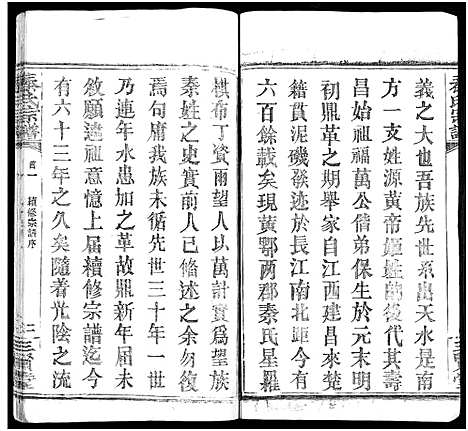 義之大也吾族先世系出天水是南
方一支姓源黄帝姬姓的後代其壽
昌始祖福萬公偕弟保生於元末明
初鼎革之期舉家自江西建昌來楚
籍貫泥磯貿於長江南北距今有
六百餘載矣現黄鄂两郡秦氏星羅
棋布丁資兩望人以萬計實爲望族
秦姓之史實前人已備述之余勿復
焉句席我族未循先世三十年一世
乃連年水患加之革故鼎新年届未
敘願違祖意憶上届續修宗譜迄今
有六十三年之久矣隨着光陰之流
秦氏宗譜
首一
續修宗譜序
三賢堂